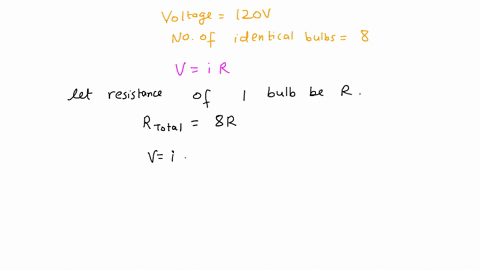 Voltage = 120V
No. of identical bulbs = 8
V = i R
let resistance of 1 bulb be R.
R Total = 8R
V = i .